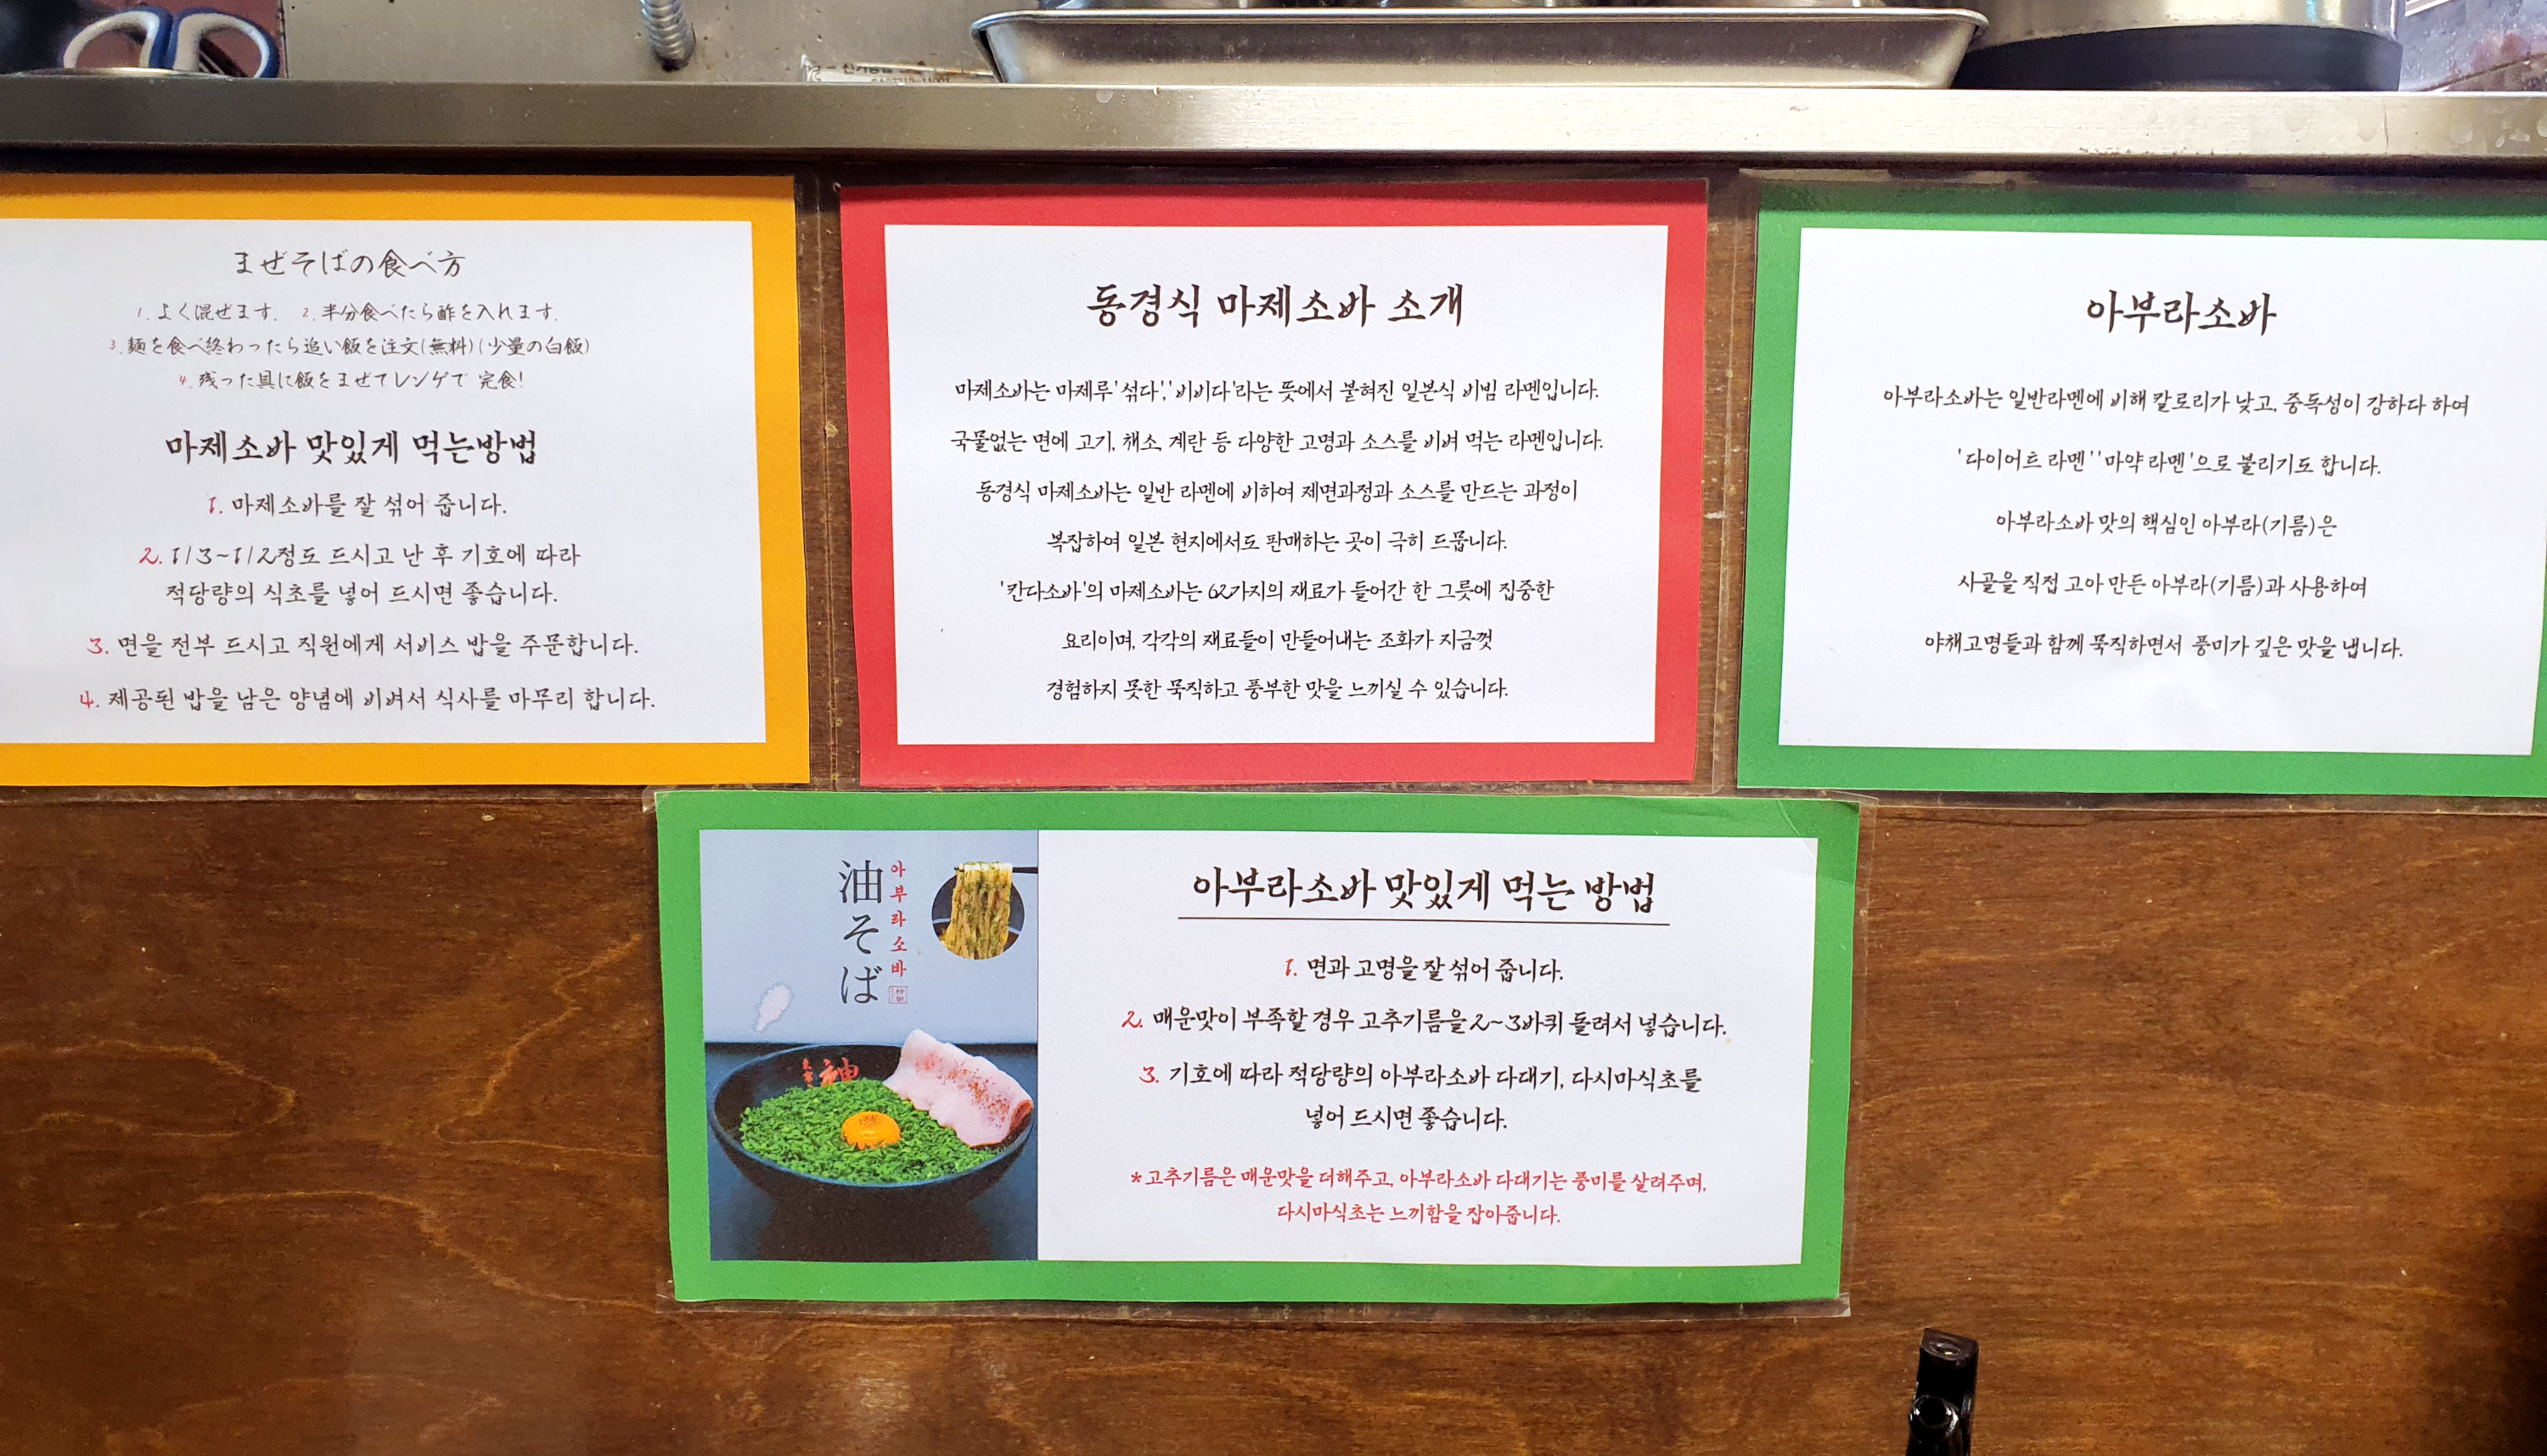 まぜそばの食べ方
1. よく混ぜます. 2. 半分食べたら酢を入れます.
3. 麺を食べ終わったら追い飯を注文(無料)(少量の白飯)
4. 残った具に飯をまぜてレンゲで 完食!
마제소바 맛있게 먹는방법
1. 마제소바를 잘 섞어 줍니다.
2. 1/3~1/2정도 드시고 난 후 기호에 따라
적당량의 식초를 넣어 드시면 좋습니다.
3. 면을 전부 드시고 직원에게 서비스 밥을 주문합니다.
4. 제공된 밥을 남은 양념에 비벼서 식사를 마무리 합니다.
동경식 마제소바 소개
마제소바는 마제루'섞다','비비다'라는 뜻에서 붙혀진 일본식 비빔 라멘입니다.
국물없는 면에 고기, 채소, 계란 등 다양한 고명과 소스를 비벼 먹는 라멘입니다.
동경식 마제소바는 일반 라멘에 비하여 제면과정과 소스를 만드는 과정이
복잡하여 일본 현지에서도 판매하는 곳이 극히 드뭅니다.
'칸다소바'의 마제소바는 62가지의 재료가 들어간 한 그릇에 집중한
요리이며, 각각의 재료들이 만들어내는 조화가 지금껏
경험하지 못한 묵직하고 풍부한 맛을 느끼실 수 있습니다.
아부라소바
아부라소바는 일반라멘에 비해 칼로리가 낮고, 중독성이 강하다 하여
'다이어트 라멘' '마약 라멘'으로 불리기도 합니다.
아부라소바 맛의 핵심인 아부라(기름)은
사골을 직접 고아 만든 아부라(기름)과 사용하여
야채고명들과 함께 묵직하면서 풍미가 깊은 맛을 냅니다.
油そば
아부라소바
아부라소바 맛있게 먹는 방법
1. 면과 고명을 잘 섞어 줍니다.
2. 매운맛이 부족할 경우 고추기름을 2~3바퀴 둘려서 넣습니다.
3. 기호에 따라 적당량의 아부라소바 다대기, 다시마식초를
넣어 드시면 좋습니다.
*고추기름은 매운맛을 더해주고, 아부라소바 다대기는 풍미를 살려주며,
다시마식초는 느끼함을 잡아줍니다.